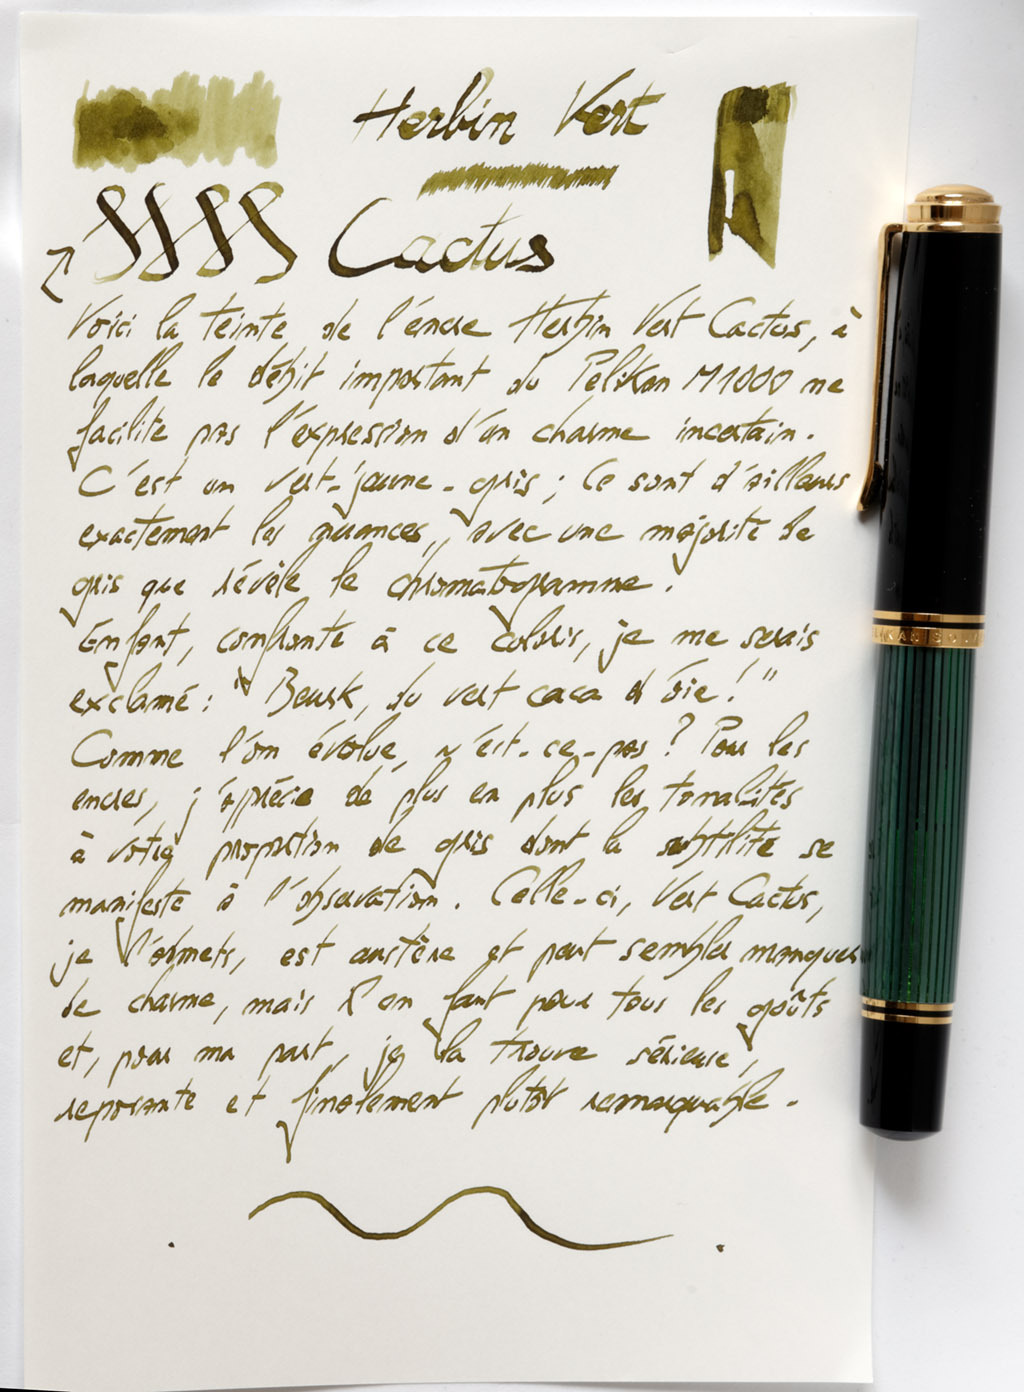 Herbin Vert
Cactus
Voici la teinte de l'encre Herbin Vert Cactus, à
laquelle le débit important du Pelikan M1000 ne
facilite pas l'expression d'un charme incertain.
C'est un vert-jaune-gris ; Ce sont d'ailleurs
exactement les nuances, avec une majorité de
gris que révèle le chromatogramme.
Enfant, confronté à ce coloris, je me serais
exclamé : "Beurk, du vert caca d'oie !"
Comme l'on évolue, n'est-ce-pas ? Pour les
encres, j'apprécie de plus en plus les tonalités
à proportion de gris dont la subtilité se
manifeste à l'observation. Celle-ci, Vert Cactus,
je l'admets, est austère et peut sembler manquer
de charme, mais l'en faut pour tous les goûts
et, pour ma part, je la trouve sérieuse,
reposante et finalement plutôt remarquable.